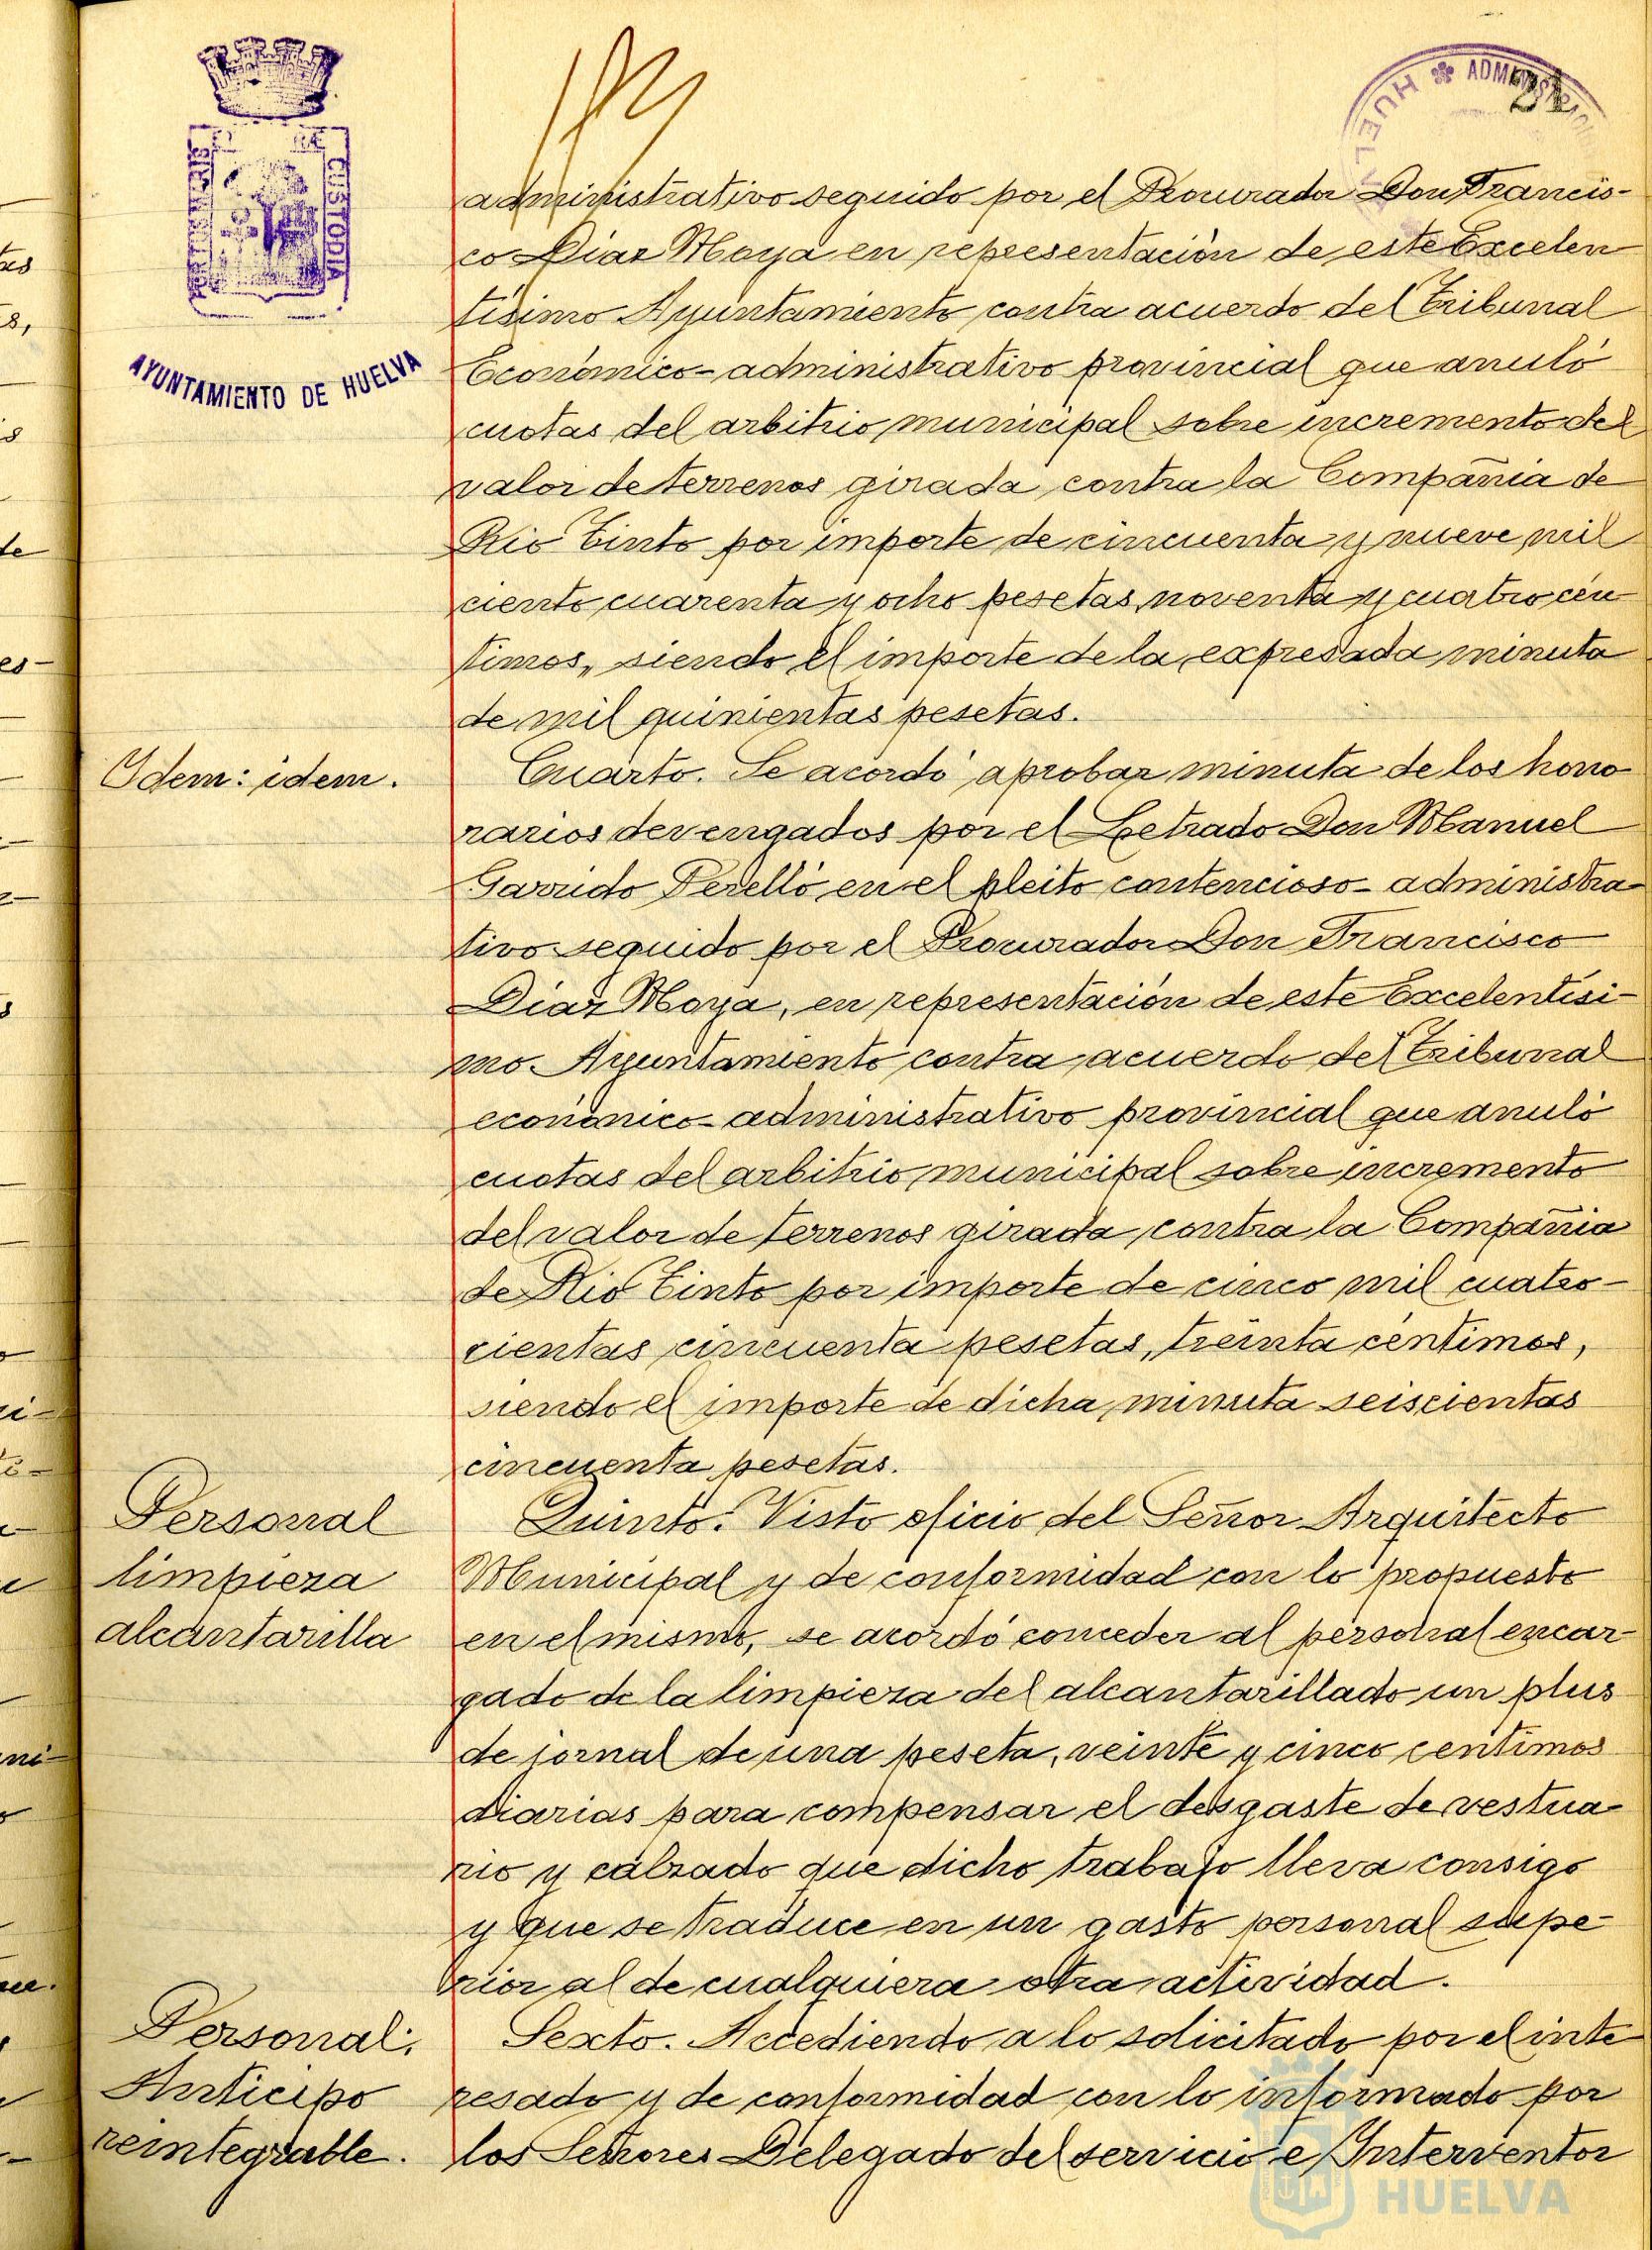 ADMINISTRACION
HUELVA
21
PORTUS MARIS
CUSTODIA
AYUNTAMIENTO DE HUELVA
administrativo seguido por el Procurador Don Francis-
co Diaz Moya en representación de este Excelen
tísimo Ayuntamiento contra acuerdo del Tribunal
Económico-administrativo provincial que anuló
cuotas del arbitrio municipal sobre incremento del
valor de terrenos girada contra la Compañia de
Rio Tinto por importe de cincuenta y nueve mil
ciento cuarenta y ocho pesetas noventa y cuatro cén
timos, siendo el importe de la expresada minuta
de mil quinientas pesetas.
Idem: idem.
Cuarto. Se acordó aprobar minuta de los hono
rarios devengados por el Letrado Don Manuel
Garrido Perelló en el pleito contencioso-administra
tivo seguido por el Procurador Don Francisco
Díaz Moya, en representación de este Excelentísi-
mo Ayuntamiento contra acuerdo del Tribunal
económico-administrativo provincial que anuló
cuotas del arbitrio municipal sobre incremento
del valor de terrenos girada contra la Compañia
de Rio Tinto por importe de cinco mil cuatro-
cientas cincuenta pesetas, treinta céntimos,
siendo el importe de dicha minuta seiscientas
cincuenta pesetas.
Personal
limpieza
alcantarilla
Quinto. Visto oficio del Señor Arquitecto
Municipal y de conformidad con lo propuesto
en el mismo, se acordó conceder al personal encar-
gado de la limpieza del alcantarillado un plus
de jornal de una peseta, veinte y cinco centimos
diarias para compensar el desgaste de vestua-
rio y calzado que dicho trabajo lleva consigo
y que se traduce en un gasto personal supe-
rior al de cualquiera otra actividad.
Personal:
Anticipo
reintegrable.
Sexto. Accediendo a lo solicitado por el inte
resado y de conformidad con lo informado por
los Señores Delegado del servicio e Interventor
HUELVA